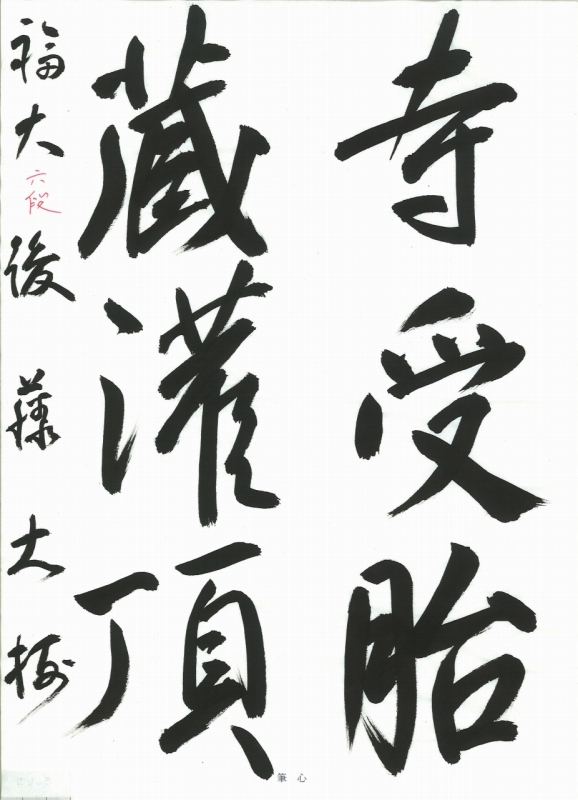 寺受胎
藏灌頂
福大 六段 後藤大樹
筆心